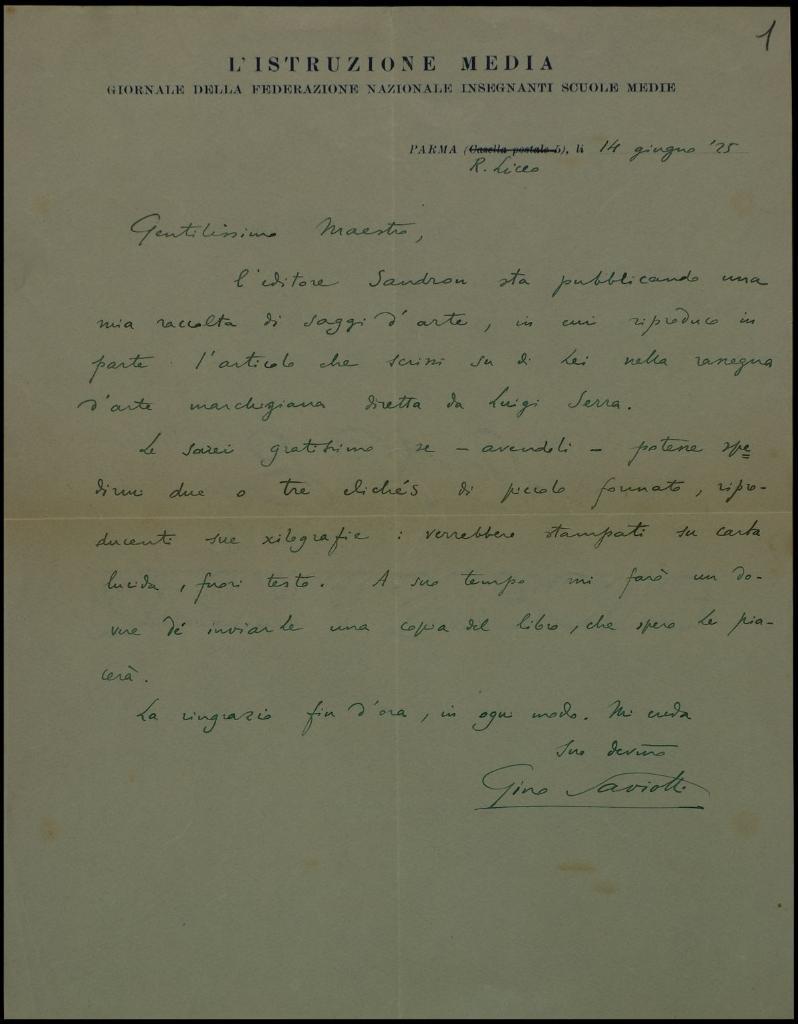 1
L'ISTRUZIONE MEDIA
GIORNALE DELLA FEDERAZIONE NAZIONALE INSEGNANTI SCUOLE MEDIE
PARMA (Casella postale 5), li 14 giugno '25
R. Liceo
Gentilissimo Maestro,
l'editore Sandron sta pubblicando una
mia raccolta di saggi d'arte, in cui riproduco in
parte l'articolo che scrissi su di Lei nella rassegna
d'arte marchigiana diretta da Luigi Serra.
Le sarei gratissimo se – avendoli – potesse spe=
dirmi due o tre clichés di piccolo formato, ripro-
ducenti sue xilografie: verrebbero stampati su carta
lucida, fuori testo. A suo tempo mi farò un do-
vere di inviarLe una copia del libro, che spero Le pia-
cerà.
La ringrazio fin d'ora, in ogni modo. Mi creda
suo dev.mo
Gino Saviotti